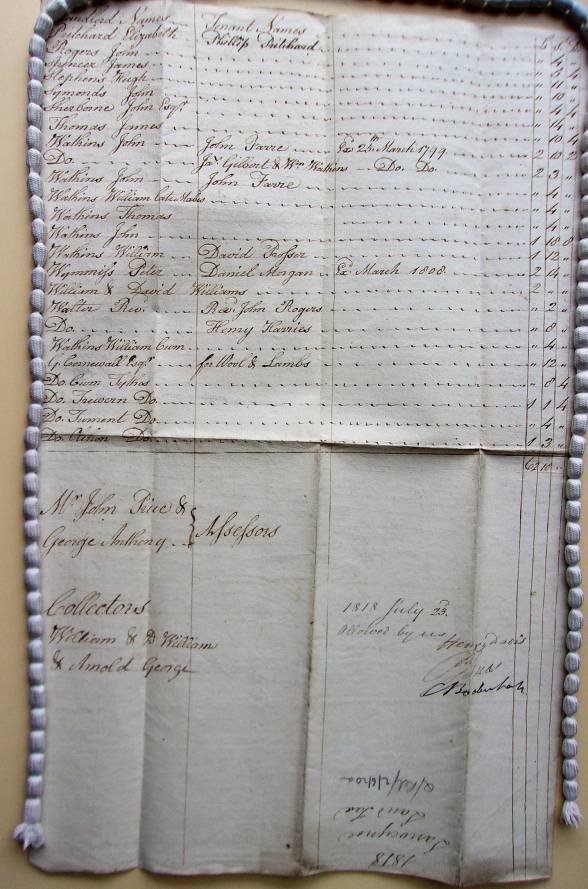 Landlord Names Tenant Names £ S D
Pritchard Elizabeth Phillip Pritchard
Rogers John
Spencer James
Stephens Hugh
Symonds John
Sherborne John Esqr
Thomas James
Watkins John John Farre Ex 25th March 1799 2 10 2
Do. Js Gilbert & Wm Watkins Do. Do. 2 3 "
Watkins John John Farre
Watkins William
Watkins Thomas
Watkins John 1 18 8
Watkins William David Prosser 1 12 "
Wymmess Peter Daniel Morgan Ex March 1808 2 14 "
William & David Williams 2 "
Walter Rev. Revd John Rogers " 2 "
Do. Henry Harries " 8 "
Watkins William Cwm " 4 "
G Cornewall Esqr for Wool & Lambs " 12 "
Do. Cwm Tythes " 8 4
Do. Trewern Do. 1 1 4
Do. Do. " 4 "
Do. Do. 1 3 "
62 10 "
Mr John Price &
George Anthony } Assessors
Collectors
William & D William
& Arnold George
1818 July 23d
allowed by us
Henry Davis
Bodenham
1818
Land Tax